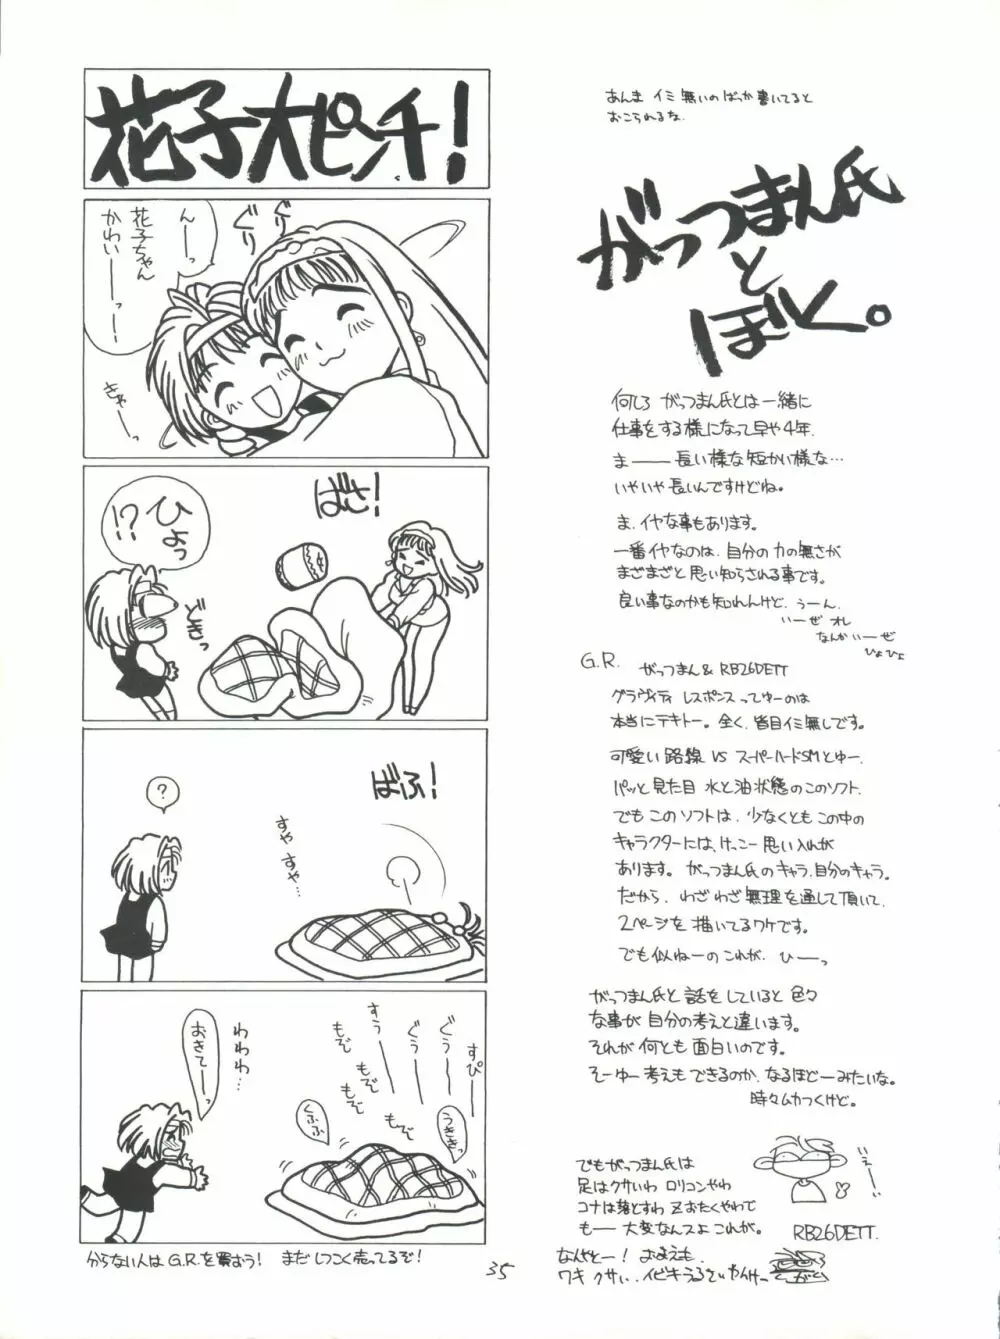 花子大ピンチ!
んーーっ
花子ちゃん
かわいーーっ
ぐりぐり
きゃーーっ
ばさ!
ひょっ
!?
どきっ
ばふ!
?
すやすや…
わわわ…
おきてーっ
すぴーー
ぐぅーー
ぐぅーー
すぅーー
もぞ
もぞ
もぞ
もぞ
もぞ
くふふ
うききっ
からない人はG.R.を買おう! まだしつこく売ってるぞ!
35
あんま イミ無いの ばっか書いてると
おこられるな.
がっつまん氏
と
ぼく。
何しろ がっつまん氏とは一緒に
仕事をする様になって早や4年.
ま――長い様な短かい様な…
いやいや長いんですけどね。
ま、イヤな事もあります。
一番イヤなのは、自分の力の無さが
まざまざと思い知らされる事です。
良い事なのかも知れんけど、うーん.
いーぜ オレ
なんかいーぜ
ひょひょ
G.R. がっつまん&RB26DETT
グラヴィティ レスポンスってゆーのは
本当にテキトー。全く、皆目イミ無しです。
可愛い路線 VS スーパーハードSMとゆー.
パッと見た目 水と油状態のこのソフト.
でもこのソフトは、少なくともこの中の
キャラクターには、けっこー思い入れが
あります。がっつまん氏のキャラ、自分のキャラ。
だから、わざわざ無理を通して頂いて、
2ページを描いてるワケです。
でも似ねーのこれが、ひーっ
がっつまん氏と話をしていると色々
な事が自分の考えと違います。
それが何とも面白いのです。
そーゆー考えもできるのか、なるほどーみたいな。
時々ムカつくけど。
でもがっつまん氏は
足はクサいわ ロリコンやわ
コナは落とすわ Zおたくやわで
も――大変なんスよこれが。
いえーーい
RB26DETT.
なんやとー! おまえも、
ワキ クサい、イビキうるさいやんけー